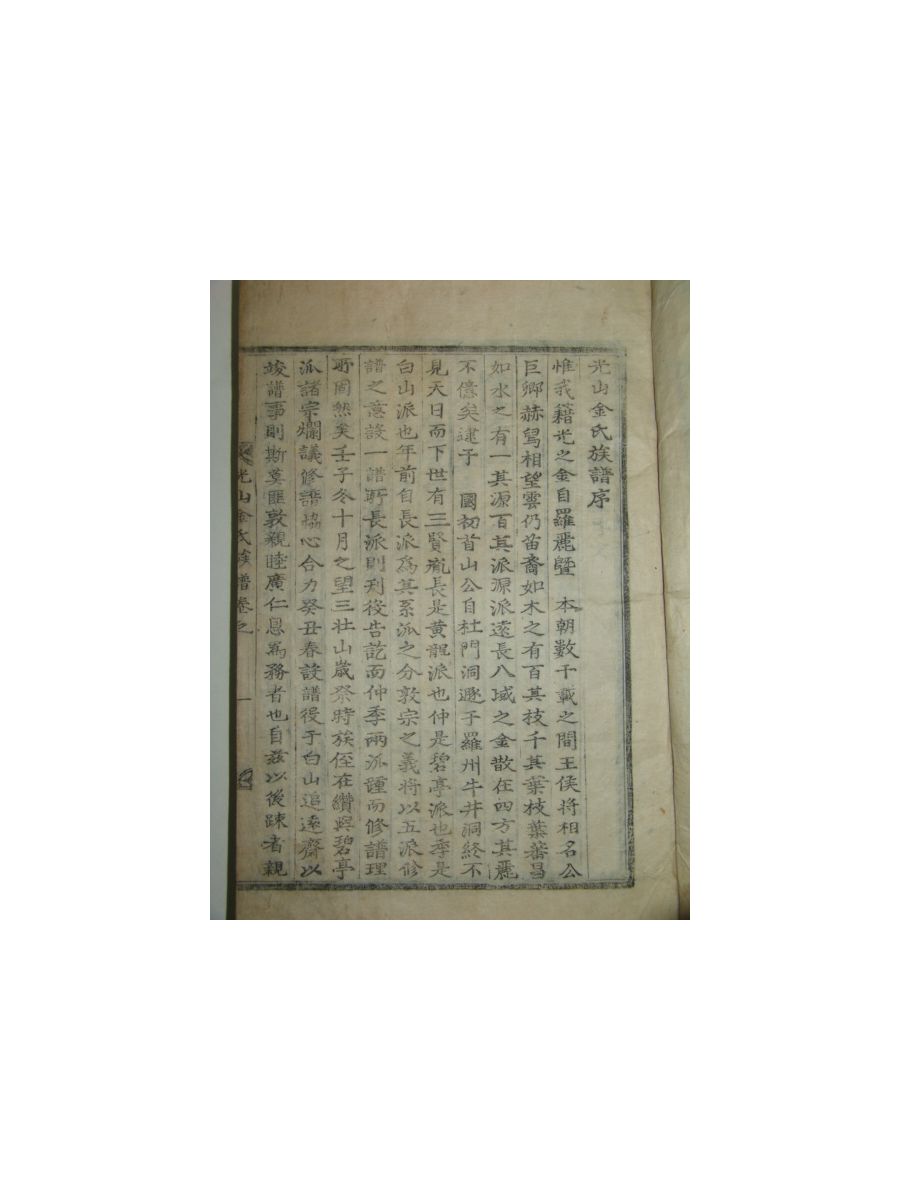 光山金氏族譜序
惟我籍光之金自羅麗曁 本朝數千載之間王侯將相名公
巨卿赫舃相望雲仍苗裔如木之有百其枝千其葉枝葉蕃昌
如水之有一其源百其派源派遠長八域之金散在四方其麗
不億矣逮于 國初首山公自杜門洞遯于羅州牛井洞終不
見天日而下世有三賢胤長是黄龍派也仲是碧亭派也季是
白山派也年前自長派爲其系派之分敦宗之義將以五派修
譜之意設一譜所長派則刋役告訖而仲季兩派踵而修譜理
所固然矣壬子冬十月之望三壯山歲祭時族侄在纘與碧亭
派諸宗爛議修譜協心合力癸丑春設譜役于白山追遠齋以
竣譜事則斯莫匪敦親睦廣仁恩爲務者也自玆以後踈者親
光山金氏族譜卷之 一